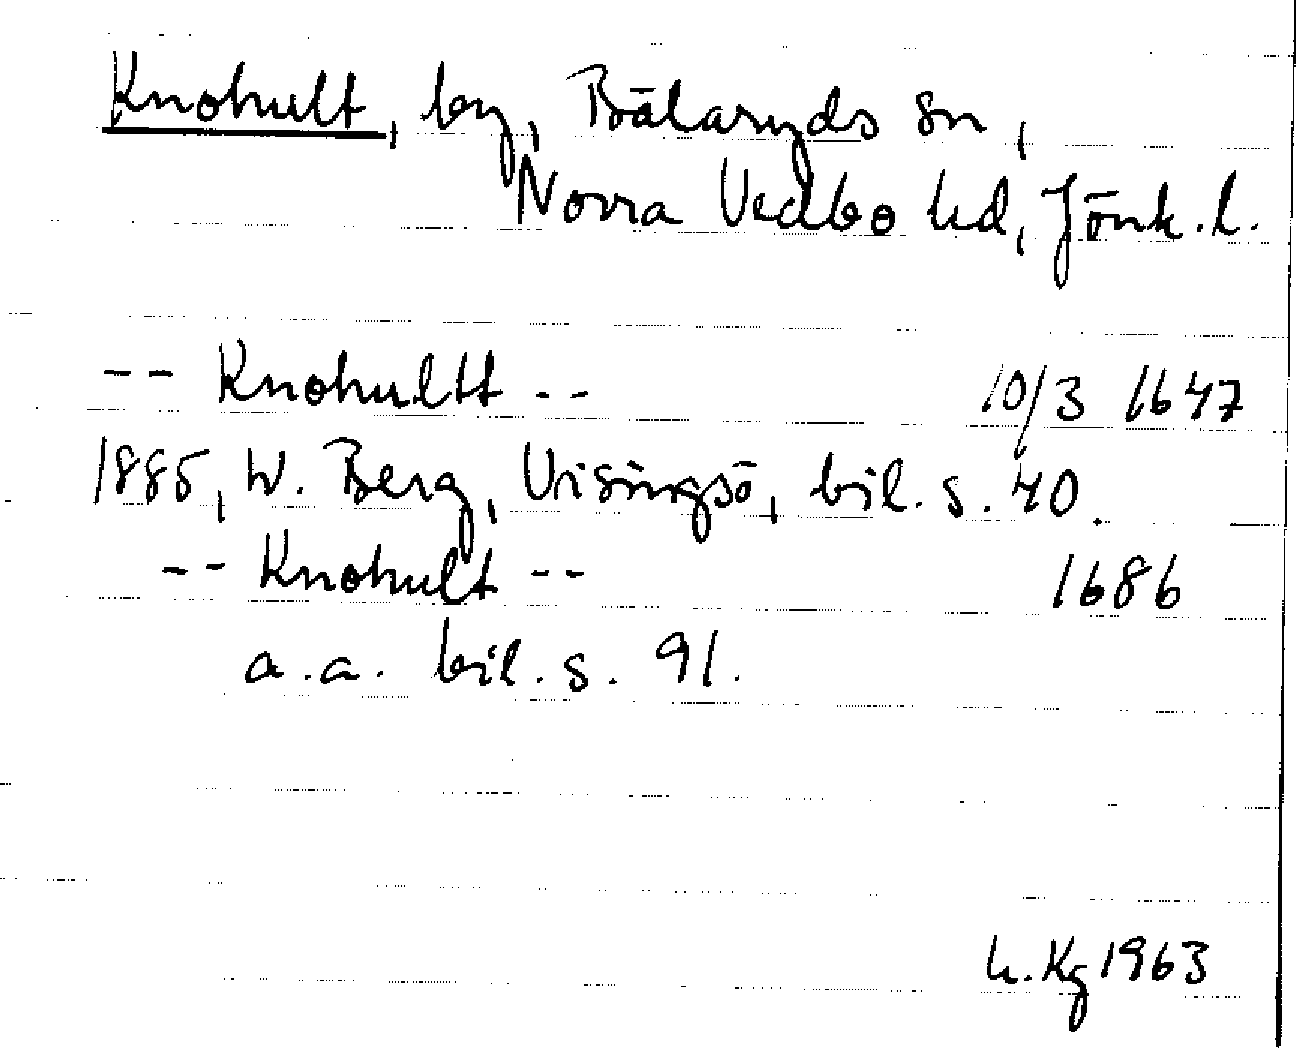 Knohult, by, Bälaryds sn,
Norra Vedbo hd, Jönk.l.
-- Knohultt -- 10/3 1647
1885, W. Berg, Visingsö, bil. s. 40.
-- Knohult -- 1686
a.a. bil. s. 91.
h.Kg 1963